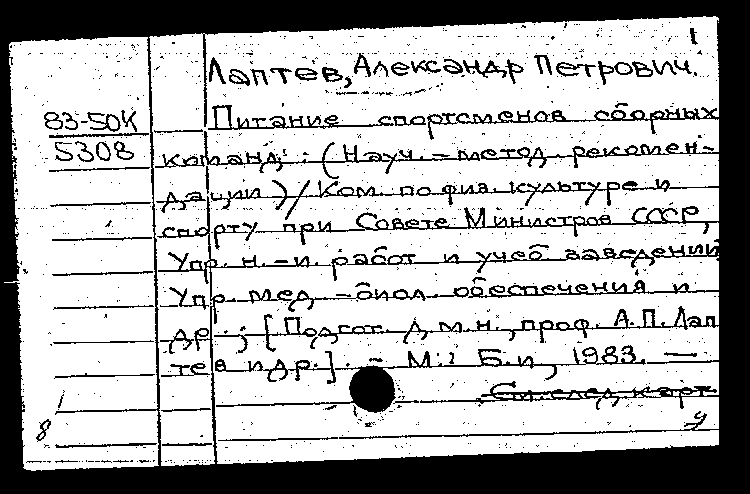 1
Лаптев, Александр Петрович.
83-50К Питание спортсменов сборных
5308 команд : (Науч. - метод. рекомен-
дации) / Ком. по физ. культуре и
спорту при Совете Министров СССР,
Упр. н.-и. работ и учеб заведений
Упр. мед. - биол. обеспечения и
др. ; [Подгот. д.м.н., проф. А.П. Лап
тев и др.]. - М.: Б.и, 1983. —
См. след. карт.
8